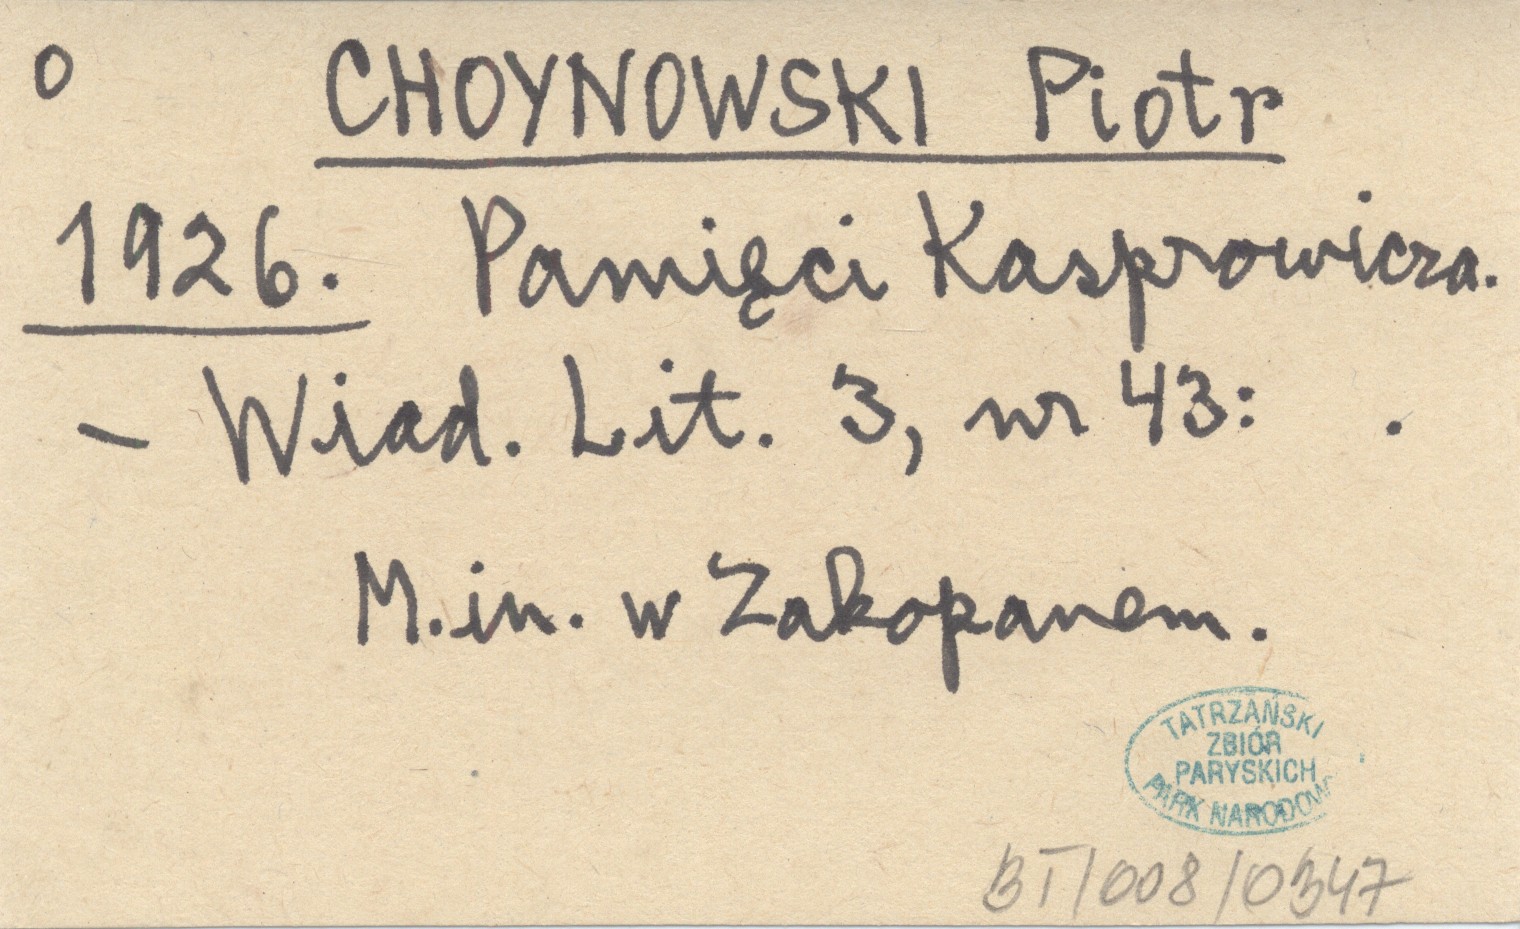 o CHOYNOWSKI Piotr
1926. Pamięci Kasprowicza.
– Wiad. Lit. 3, nr 43: .
M.in. w Zakopanem.
TATRZAŃSKI
ZBIÓR
PARYSKICH
PARK NARODOW
BT/008/0347